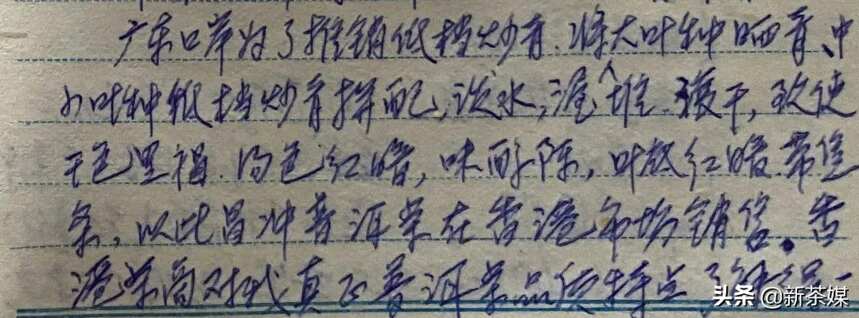 广东口岸为了推销低档炒青,将大叶种晒青、中
小叶种低档炒青拼配,泼水,渥堆,复干,致使
干色黑褐,汤色红暗,味醇陈,叶底红暗带焦
条,以此冒冲普洱茶在香港市场销售。香
港茶商对我真正普洱茶品质特点
头条 @新茶媒